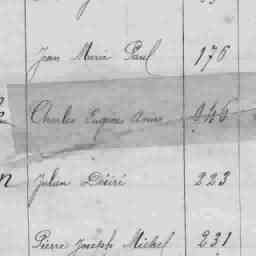 Jean Marie Paul 176
Charles Eugène Anne 946
Julien Désiré 223
Pierre Joseph Michel 231